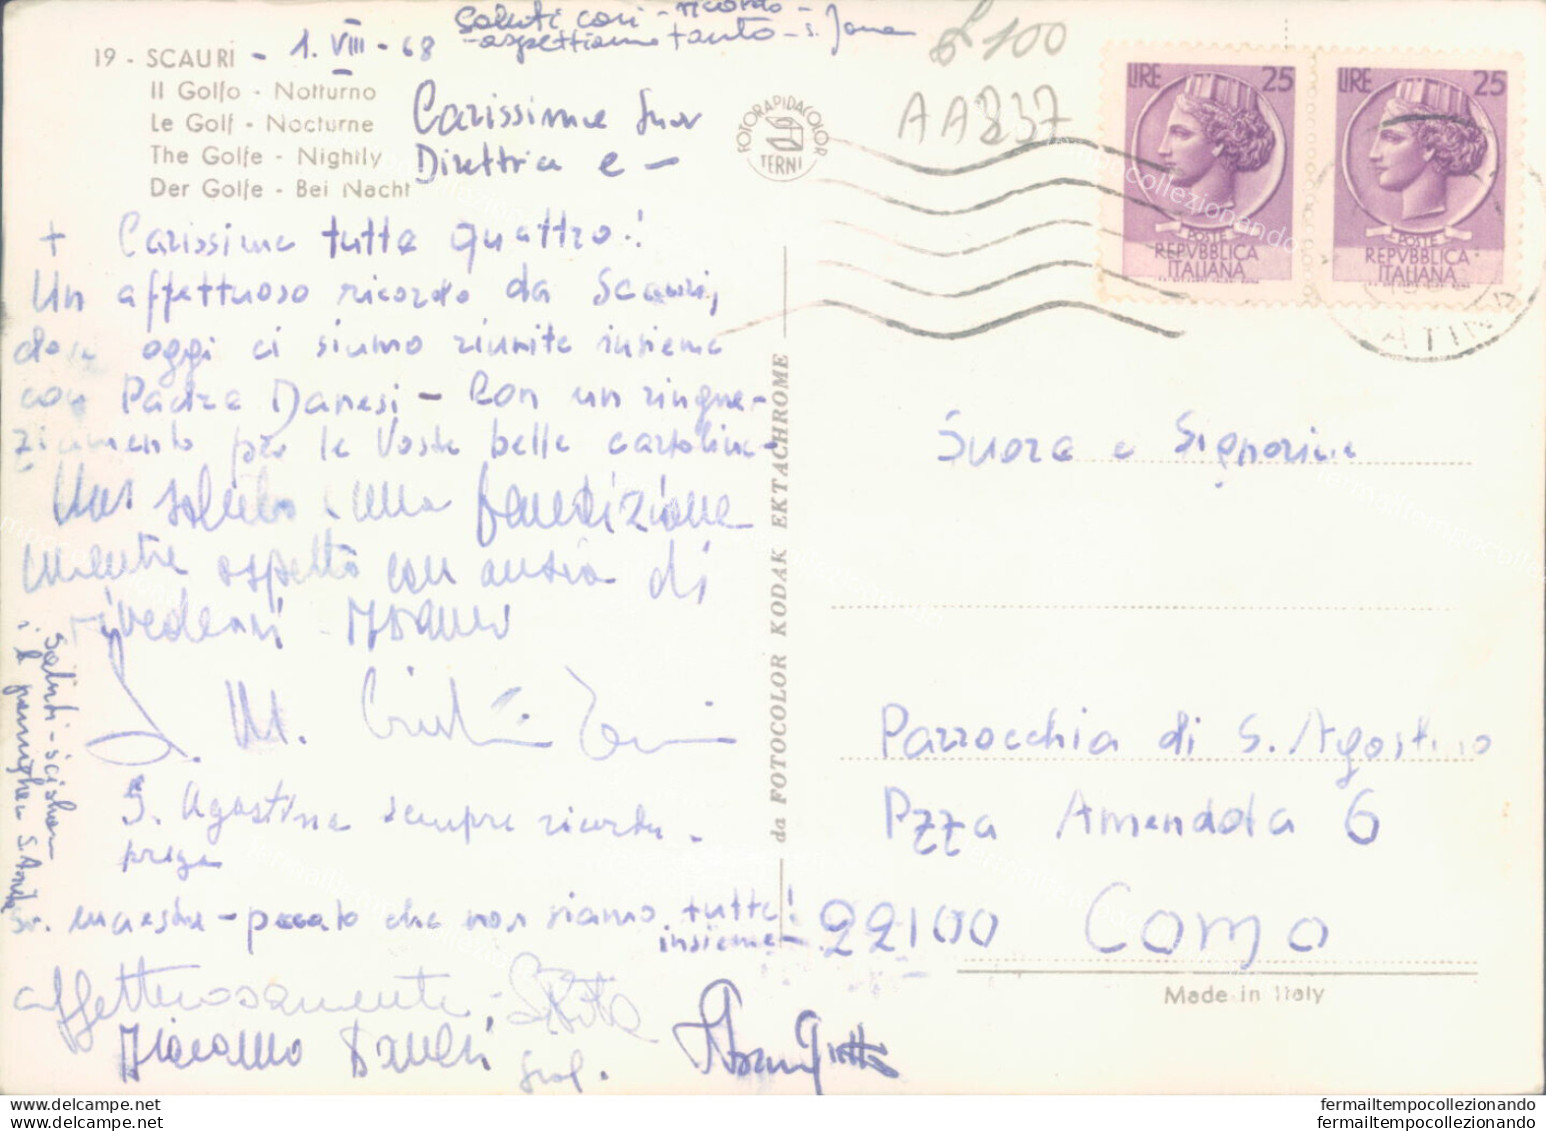 Saluti cari - ricordo -
- aspettiamo tanto - s.
£ 100
AA837
19 - SCAURI - 1. VIII - 68
Il Golfo - Notturno
Le Golf - Nocturne
The Golfe - Nightly
Der Golfe - Bei Nacht
Carissime Suor
Direttrice e -
+ Carissime tutte quattro!
Un affettuoso ricordo da Scauri,
dove oggi ci siamo riunite insieme
con Padre Danesi - Con un ringra-
ziamento per le Vostre belle cartoline -
Un saluto e una benedizione
mentre aspetto con ansia di
rivedervi
S. M.
S. Agostina sempre ricorda -
prega
maestre - peccato che non siamo tutte!
insieme -
affettuosamente,
Giacomo Danesi
Saluti -
FOTORAPIDACOLOR
TERNI
da FOTOCOLOR KODAK EKTACHROME
LIRE 25
POSTE
REPVBBLICA
ITALIANA
LIRE 25
POSTE
REPVBBLICA
ITALIANA
LATINA
Suore e Signorine
Parrocchia di S. Agostino
Pzza Amendola 6
22100 Como
Made in Italy
fermailtempocollezionando
fermailtempocollezionando
fermailtempocollezionando
fermailtempocollezionando